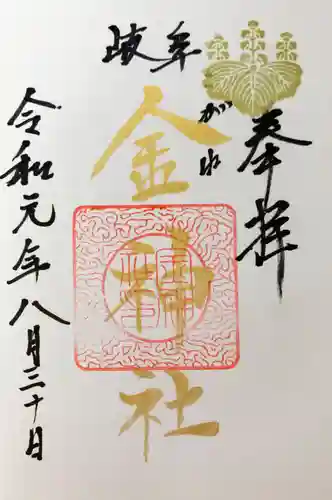 奉拝
岐阜
金神社
令和元年八月三十日